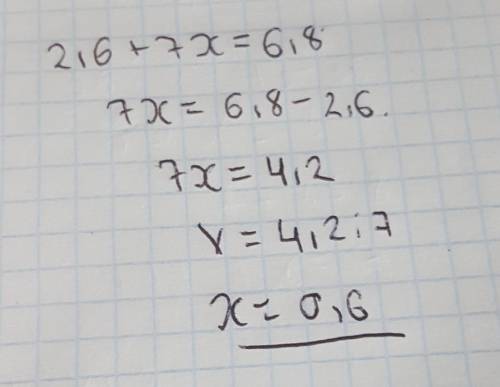 2,6 + 7x = 6,8
7x = 6,8 - 2,6.
7x = 4,2
x = 4,2 : 7
x = 0,6